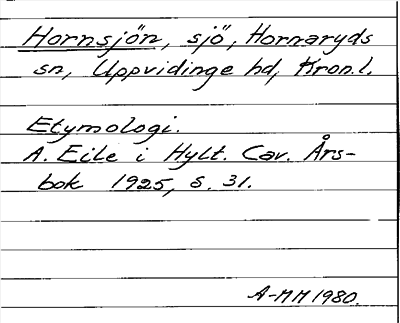 Hornsjön, sjö, Hornaryds
sn, Uppvidinge hd, Kron.l.
Etymologi.
A. Eile i Hylt. Cav. Års-
bok 1925, s. 31.
A-MH 1980.